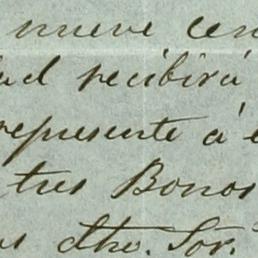 nueve cen
ad recibirá
represente á e
tres Bonos
s dho. Sor.